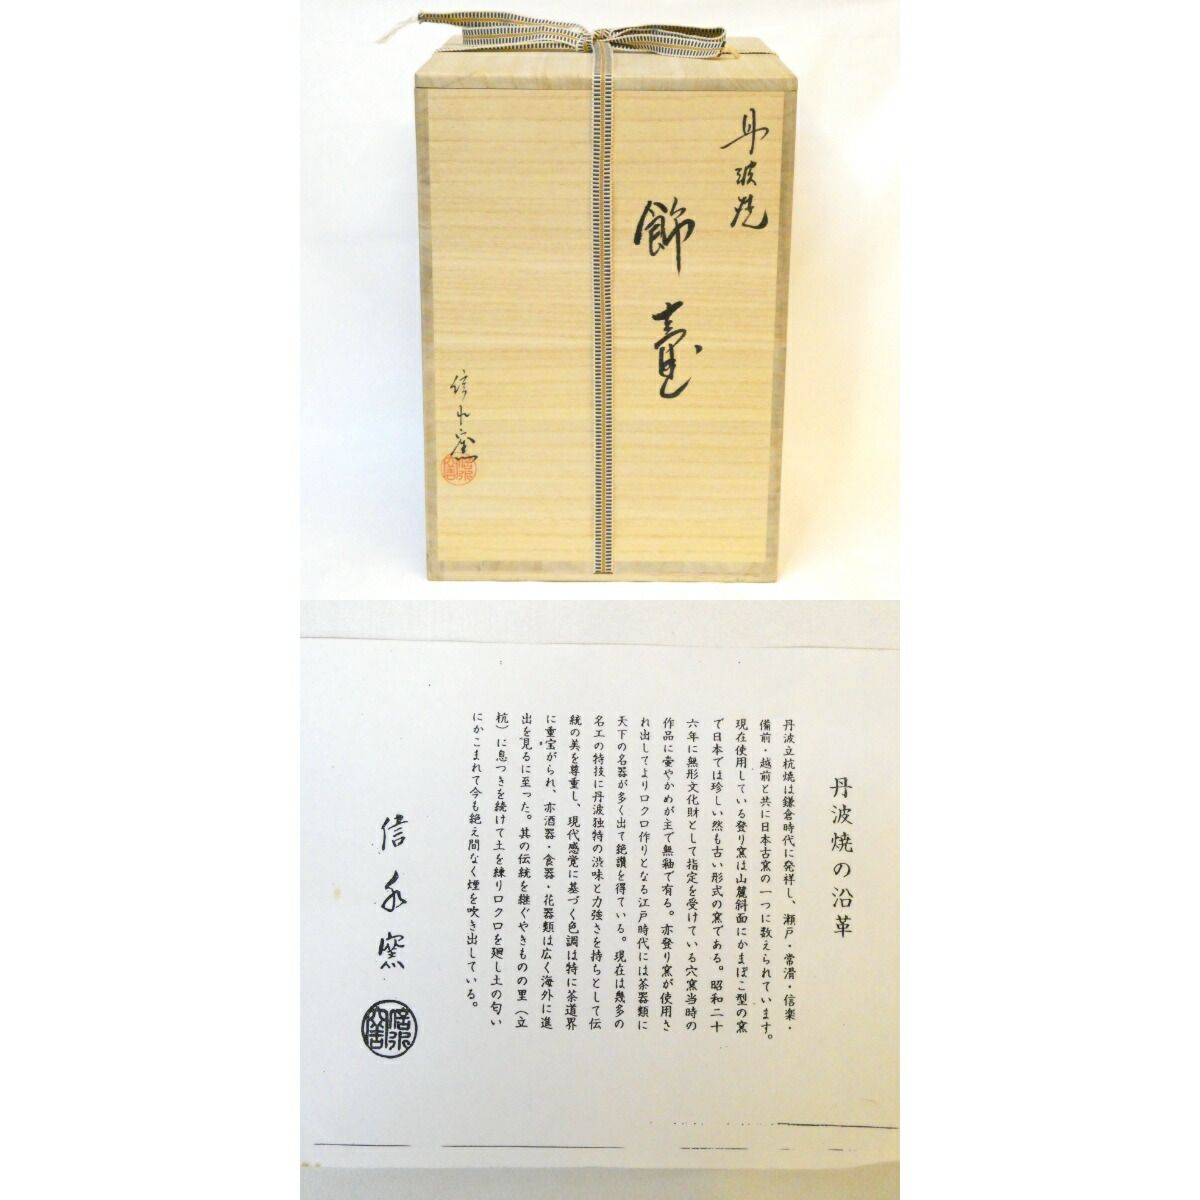 丹波焼
飾壷
信水窯
丹波焼の沿革
丹波立杭焼は鎌倉時代に発祥し、瀬戸・常滑・信楽・
備前・越前と共に日本古窯の一つに数えられています。
現在使用している登り窯は山麓斜面にかまぼこ型の窯
で日本では珍しい然も古い形式の窯である。昭和二十
六年に無形文化財として指定を受けている穴窯当時の
作品に壷やかめが主で無釉で有る。亦登り窯が使用さ
れ出してよりロクロ作りとなる江戸時代には茶器類に
天下の名器が多く出て絶讃を得ている。現在は幾多の
名工の特技に丹波独特の渋味と力強さを持ちとして伝
統の美を尊重し、現代感覚に基づく色調は特に茶道界
に重宝がられ、亦酒器・食器・花器類は広く海外に進
出を見るに至った。其の伝統を継ぐやきものの里（立
杭）に息つきを続けて土を練りロクロを廻し土の匂い
にかこまれて今も絶え間なく煙を吹き出している。
信水窯